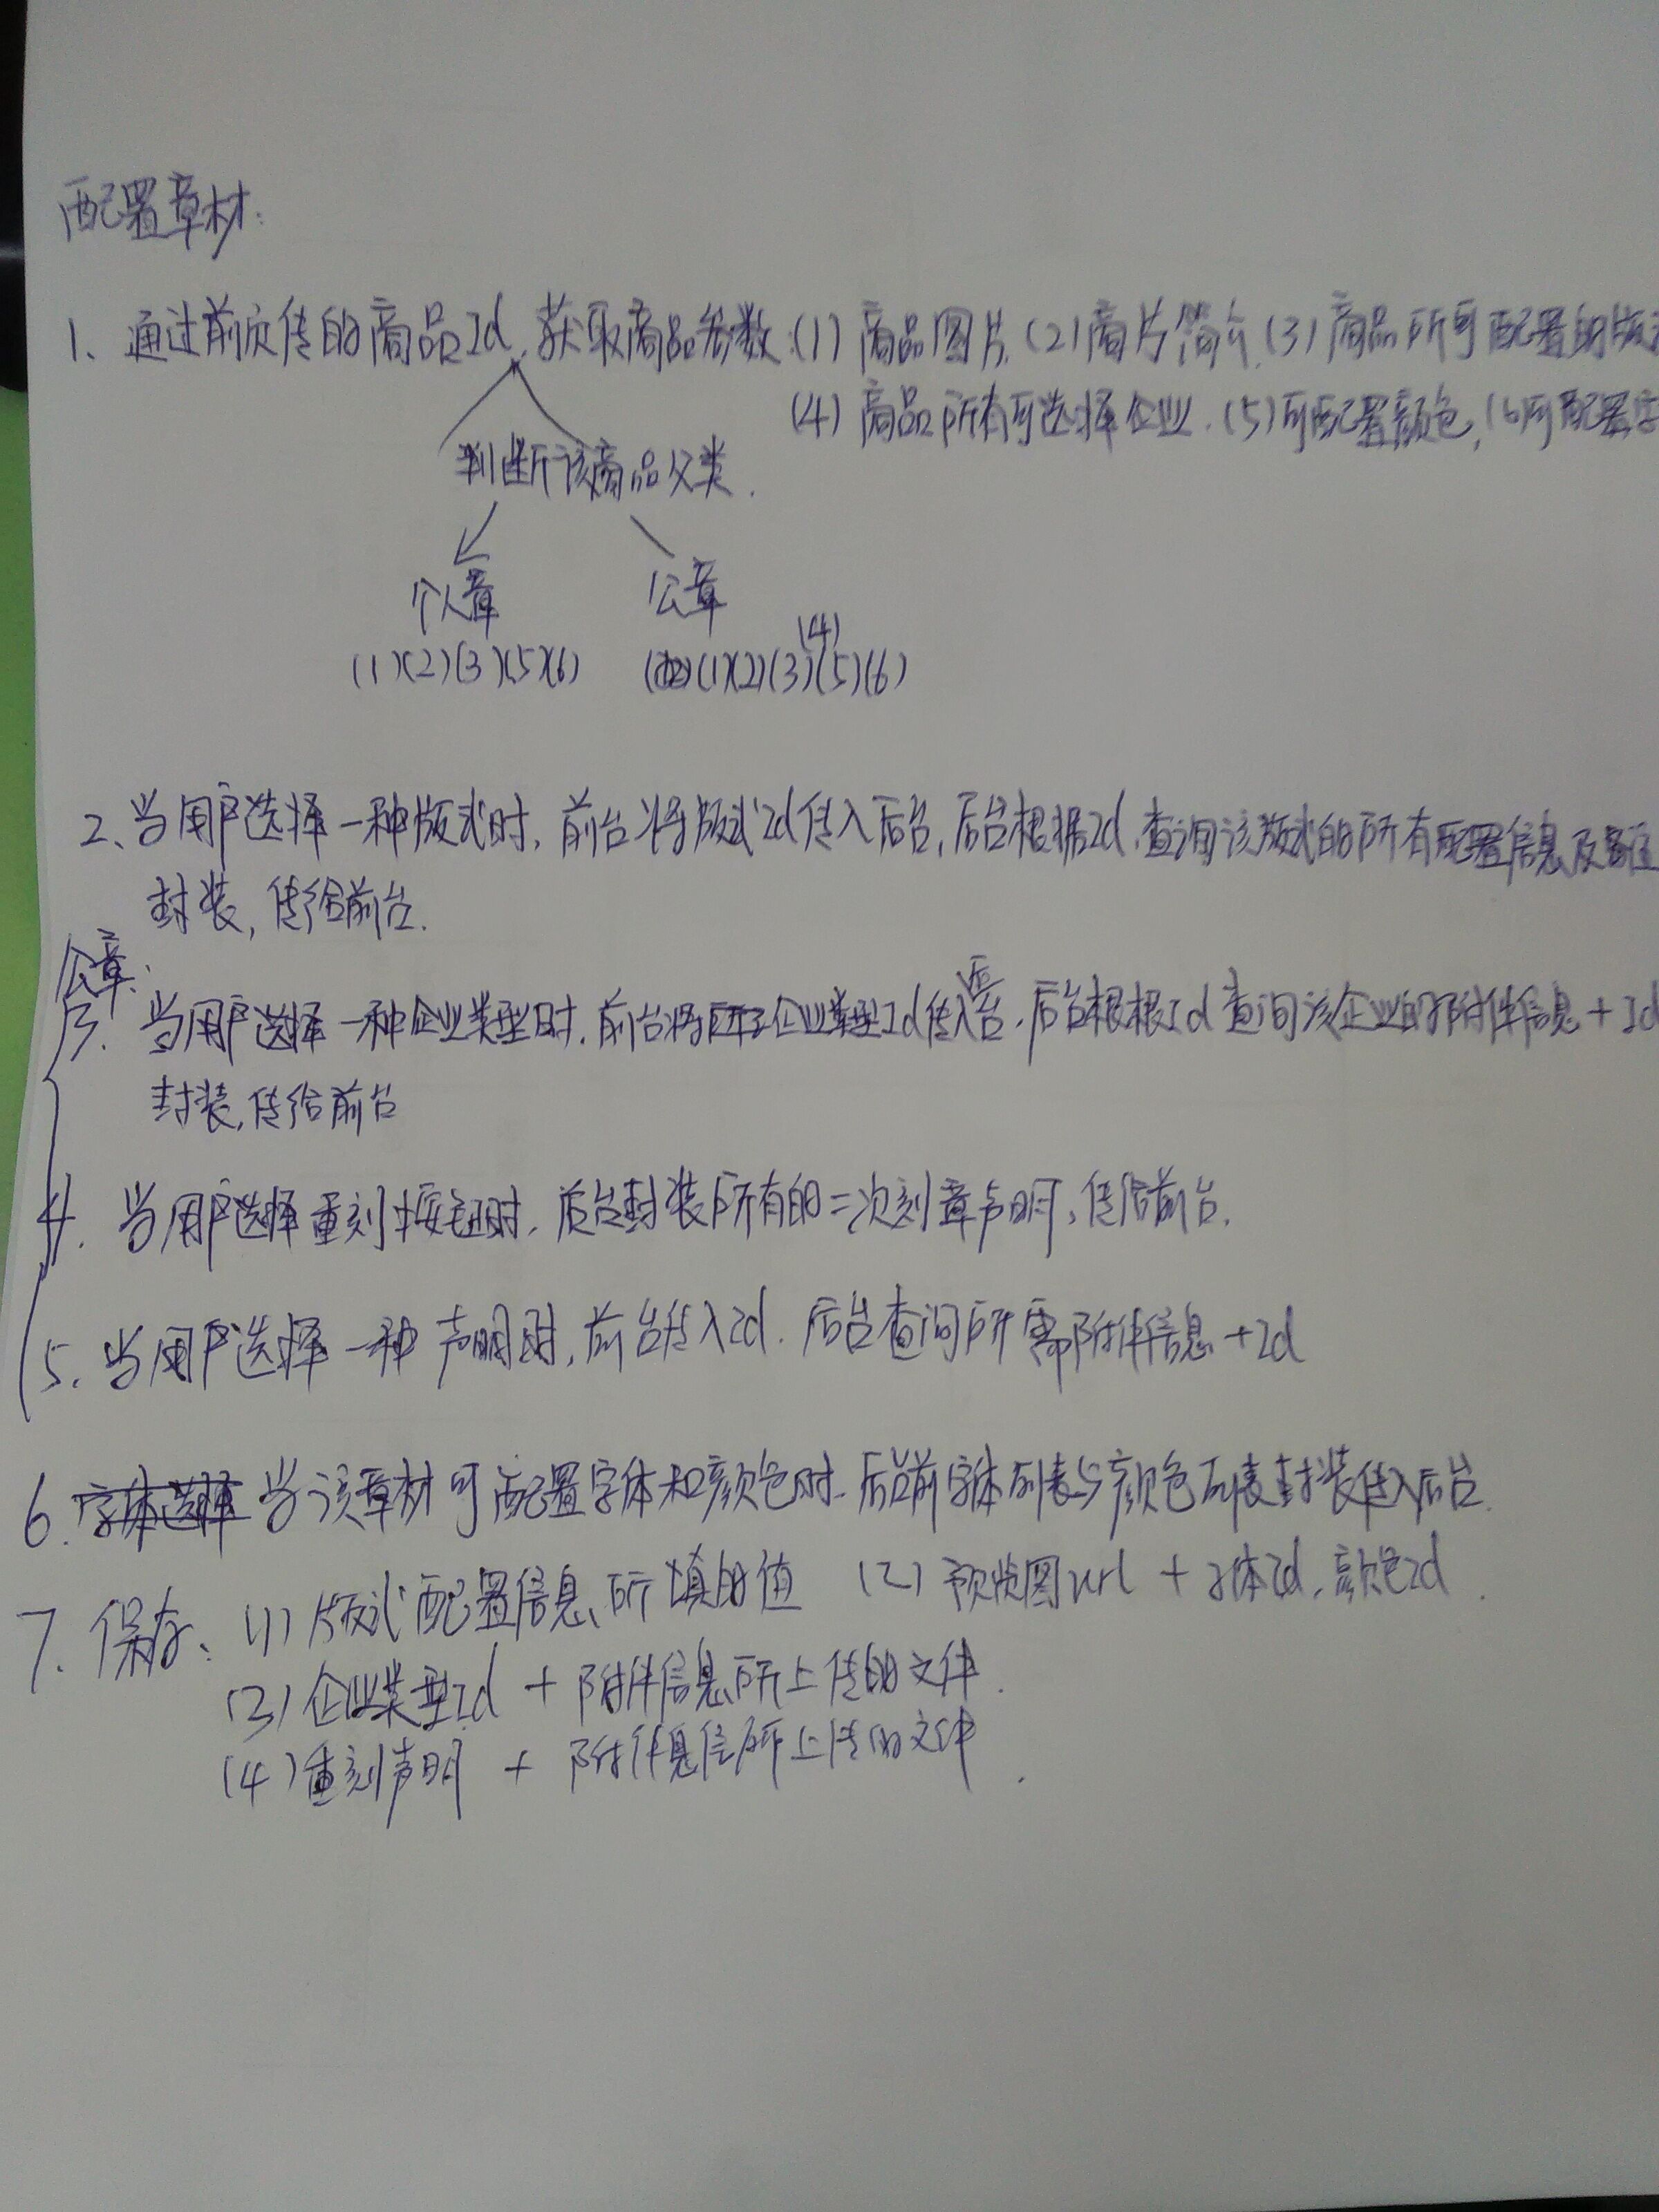 配置章材:
1、通过前页传的商品Id,获取商品参数:(1)商品图片,(2)商片简介,(3)商品所可配置的版
(4)商品所有可选择企业.(5)可配置颜色,(6)可配置字
判断该商品父类.
个人章 公章
(4)
(1)(2)(3)(5)(6) (1)(2)(3)(5)(6)
2、当用户选择一种版式时,前台将版式Id传入后台,后台根据Id,查询该版式的所有配置信息及
封装,传给前台.
公章:
3.当用户选择一种企业类型时,前台将企业类型Id传入后台,后台根根Id查询该企业的附件信息+Id
封装,传给前台
4.当用户选择重刻按钮时,后台封装所有的二次刻章声明,传给前台.
5.当用户选择一种声明时,前台传入Id.后台查询所需附件信息+Id
6.字体选择 当该章材可配置字体和颜色时.后台前字体列表与颜色列表封装传入后台.
7.保存:(1)版式配置信息所填的值 (2)预览图url+字体Id,颜色Id.
(3)企业类型Id+附件信息所上传的文件.
(4)重刻声明+附件息信所上传的文件.